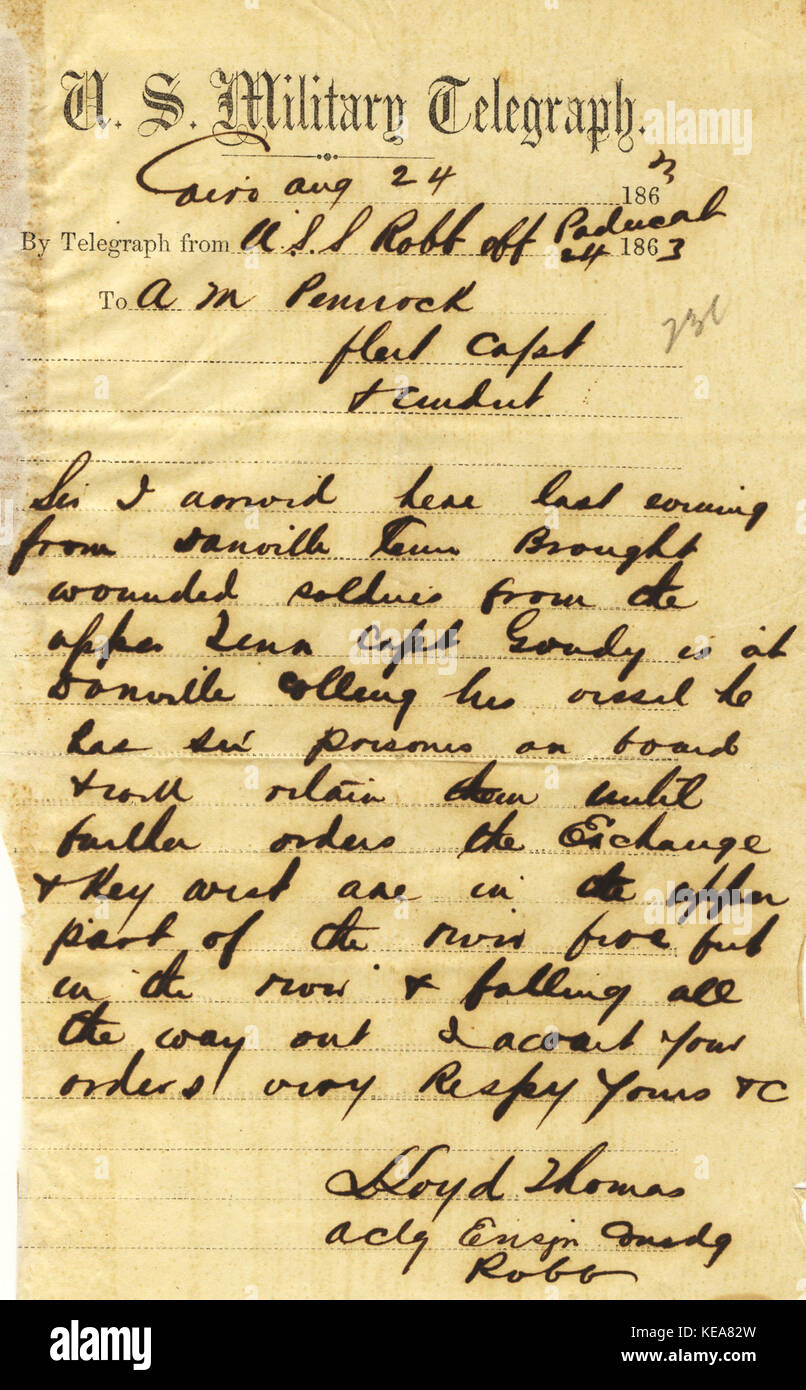 U. S. Military Telegraph.
Cairo Aug 24 1863
By Telegraph from U.S.S Robb off Paducah 24 1863
To A M Pennock
fleet Capt
&
731
Sir I arrived here last evening
from Danville Tenn Brought
wounded soldiers from the
upper Tenn Capt Goudy is at
Danville his vessel he
has six prisoners on board
& will retain them until
further orders the Exchange
& Key west are in the upper
part of the river five feet
in the river & falling all
the way out I await your
orders very Respy Yours &C
Lloyd Thomas
actg Ensign Comdg
Robb
alamy
alamy
Image ID: KEA82W
www.alamy.com